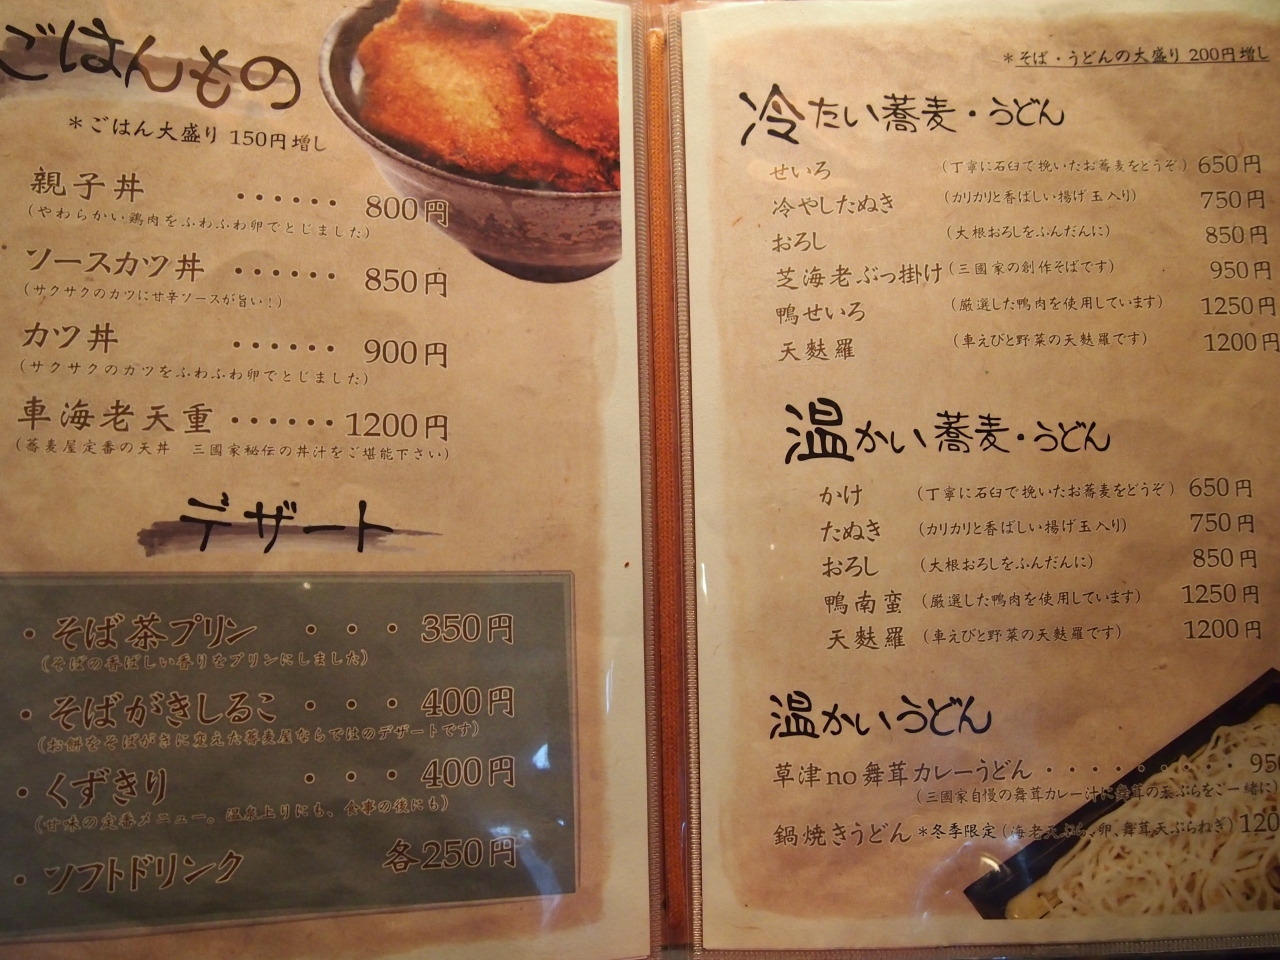 ごはんもの
＊ごはん大盛り 150円増し
親子丼 ・・・・・・ 800円
(やわらかい鶏肉をふわふわ卵でとじました)
ソースカツ丼 ・・・・・・ 850円
(サクサクのカツに甘辛ソースが旨い！)
カツ丼 ・・・・・・ 900円
(サクサクのカツをふわふわ卵でとじました)
車海老天重 ・・・・・・ 1200円
(蕎麦屋定番の天丼 三國家秘伝の丼汁をご堪能下さい)
デザート
・そば茶プリン ・・・ 350円
(そばの香ばしい香りをプリンにしました)
・そばがきしるこ ・・・ 400円
(お餅をそばがきに変えた蕎麦屋ならではのデザートです)
・くずきり ・・・ 400円
(甘味の定番メニュー。温泉上りにも、食事の後にも)
・ソフトドリンク 各250円
＊そば・うどんの大盛り 200円増し
冷たい蕎麦・うどん
せいろ (丁寧に石臼で挽いたお蕎麦をどうぞ) 650円
冷やしたぬき (カリカリと香ばしい揚げ玉入り) 750円
おろし (大根おろしをふんだんに) 850円
芝海老ぶっ掛け (三國家の創作そばです) 950円
鴨せいろ (厳選した鴨肉を使用しています) 1250円
天麩羅 (車えびと野菜の天麩羅です) 1200円
温かい蕎麦・うどん
かけ (丁寧に石臼で挽いたお蕎麦をどうぞ) 650円
たぬき (カリカリと香ばしい揚げ玉入り) 750円
おろし (大根おろしをふんだんに) 850円
鴨南蛮 (厳選した鴨肉を使用しています) 1250円
天麩羅 (車えびと野菜の天麩羅です) 1200円
温かいうどん
草津no舞茸カレーうどん ・・・・・・・・・ 950
(三國家自慢の舞茸カレー汁に舞茸の天ぷらをご一緒に)
鍋焼きうどん ＊冬季限定 (海老天ぷら、卵、舞茸天ぷらねぎ) 120